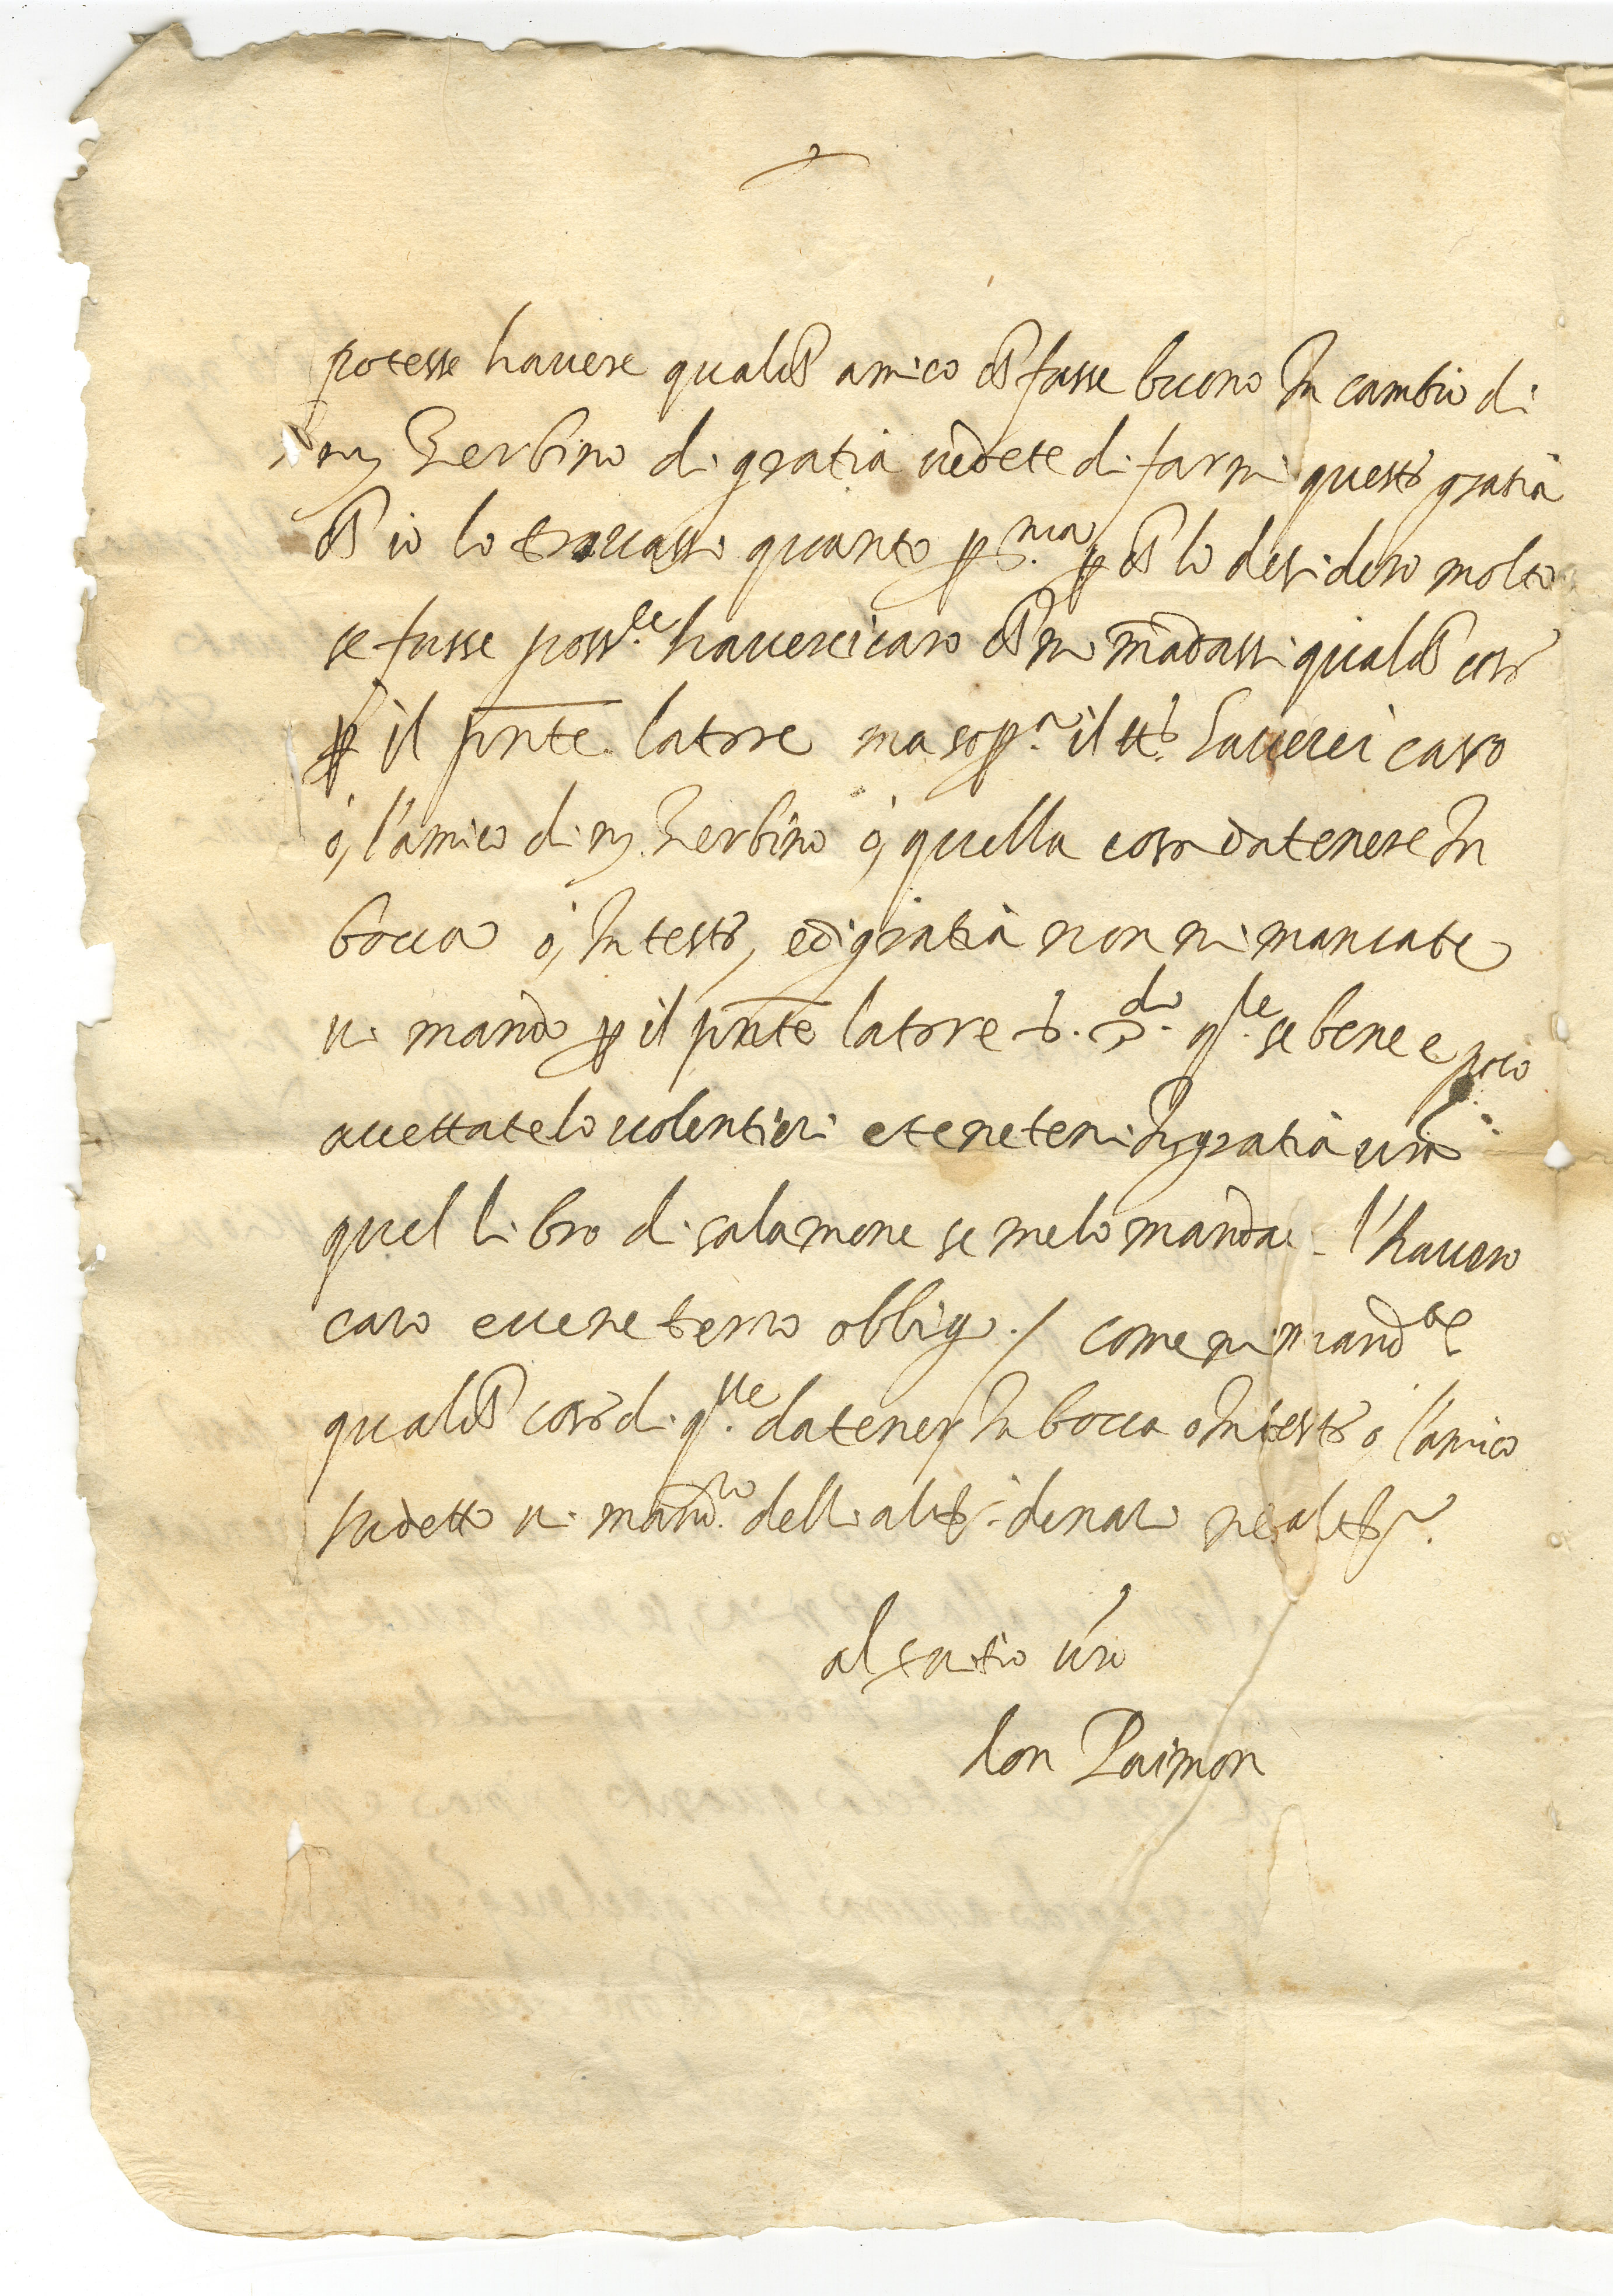 potesse havere qualch amico ch fusse buono In cambio di
m Zerbino di gratia vedete di farmi questa gratia
ch io lo trovassi quanto p.ma p ch lo desidero molto
se fusse poss.le haverei caro ch mi madassi qualch cosa
p il pnte latore ma sop.a il tt.o haverei caro
ò, l'amico di m. Zerbino ò, quella cosa da tenere In
bocca ò, In testa, e di gratia non mi mancate
vi mando p il pnte latore di q.le se bene e poco
accettatelo volentieri e tenetemi In gratia vra
quel libro di salamone se me lo mandar l'havero
caro e vene terro obbligo. / come mi mand.te
qualch cosa di q.lle da tener In bocca o In testa o, l'amico
sudetto vi mand.ro delli altri denari ne altr.
al servitio vro
Don Paimon